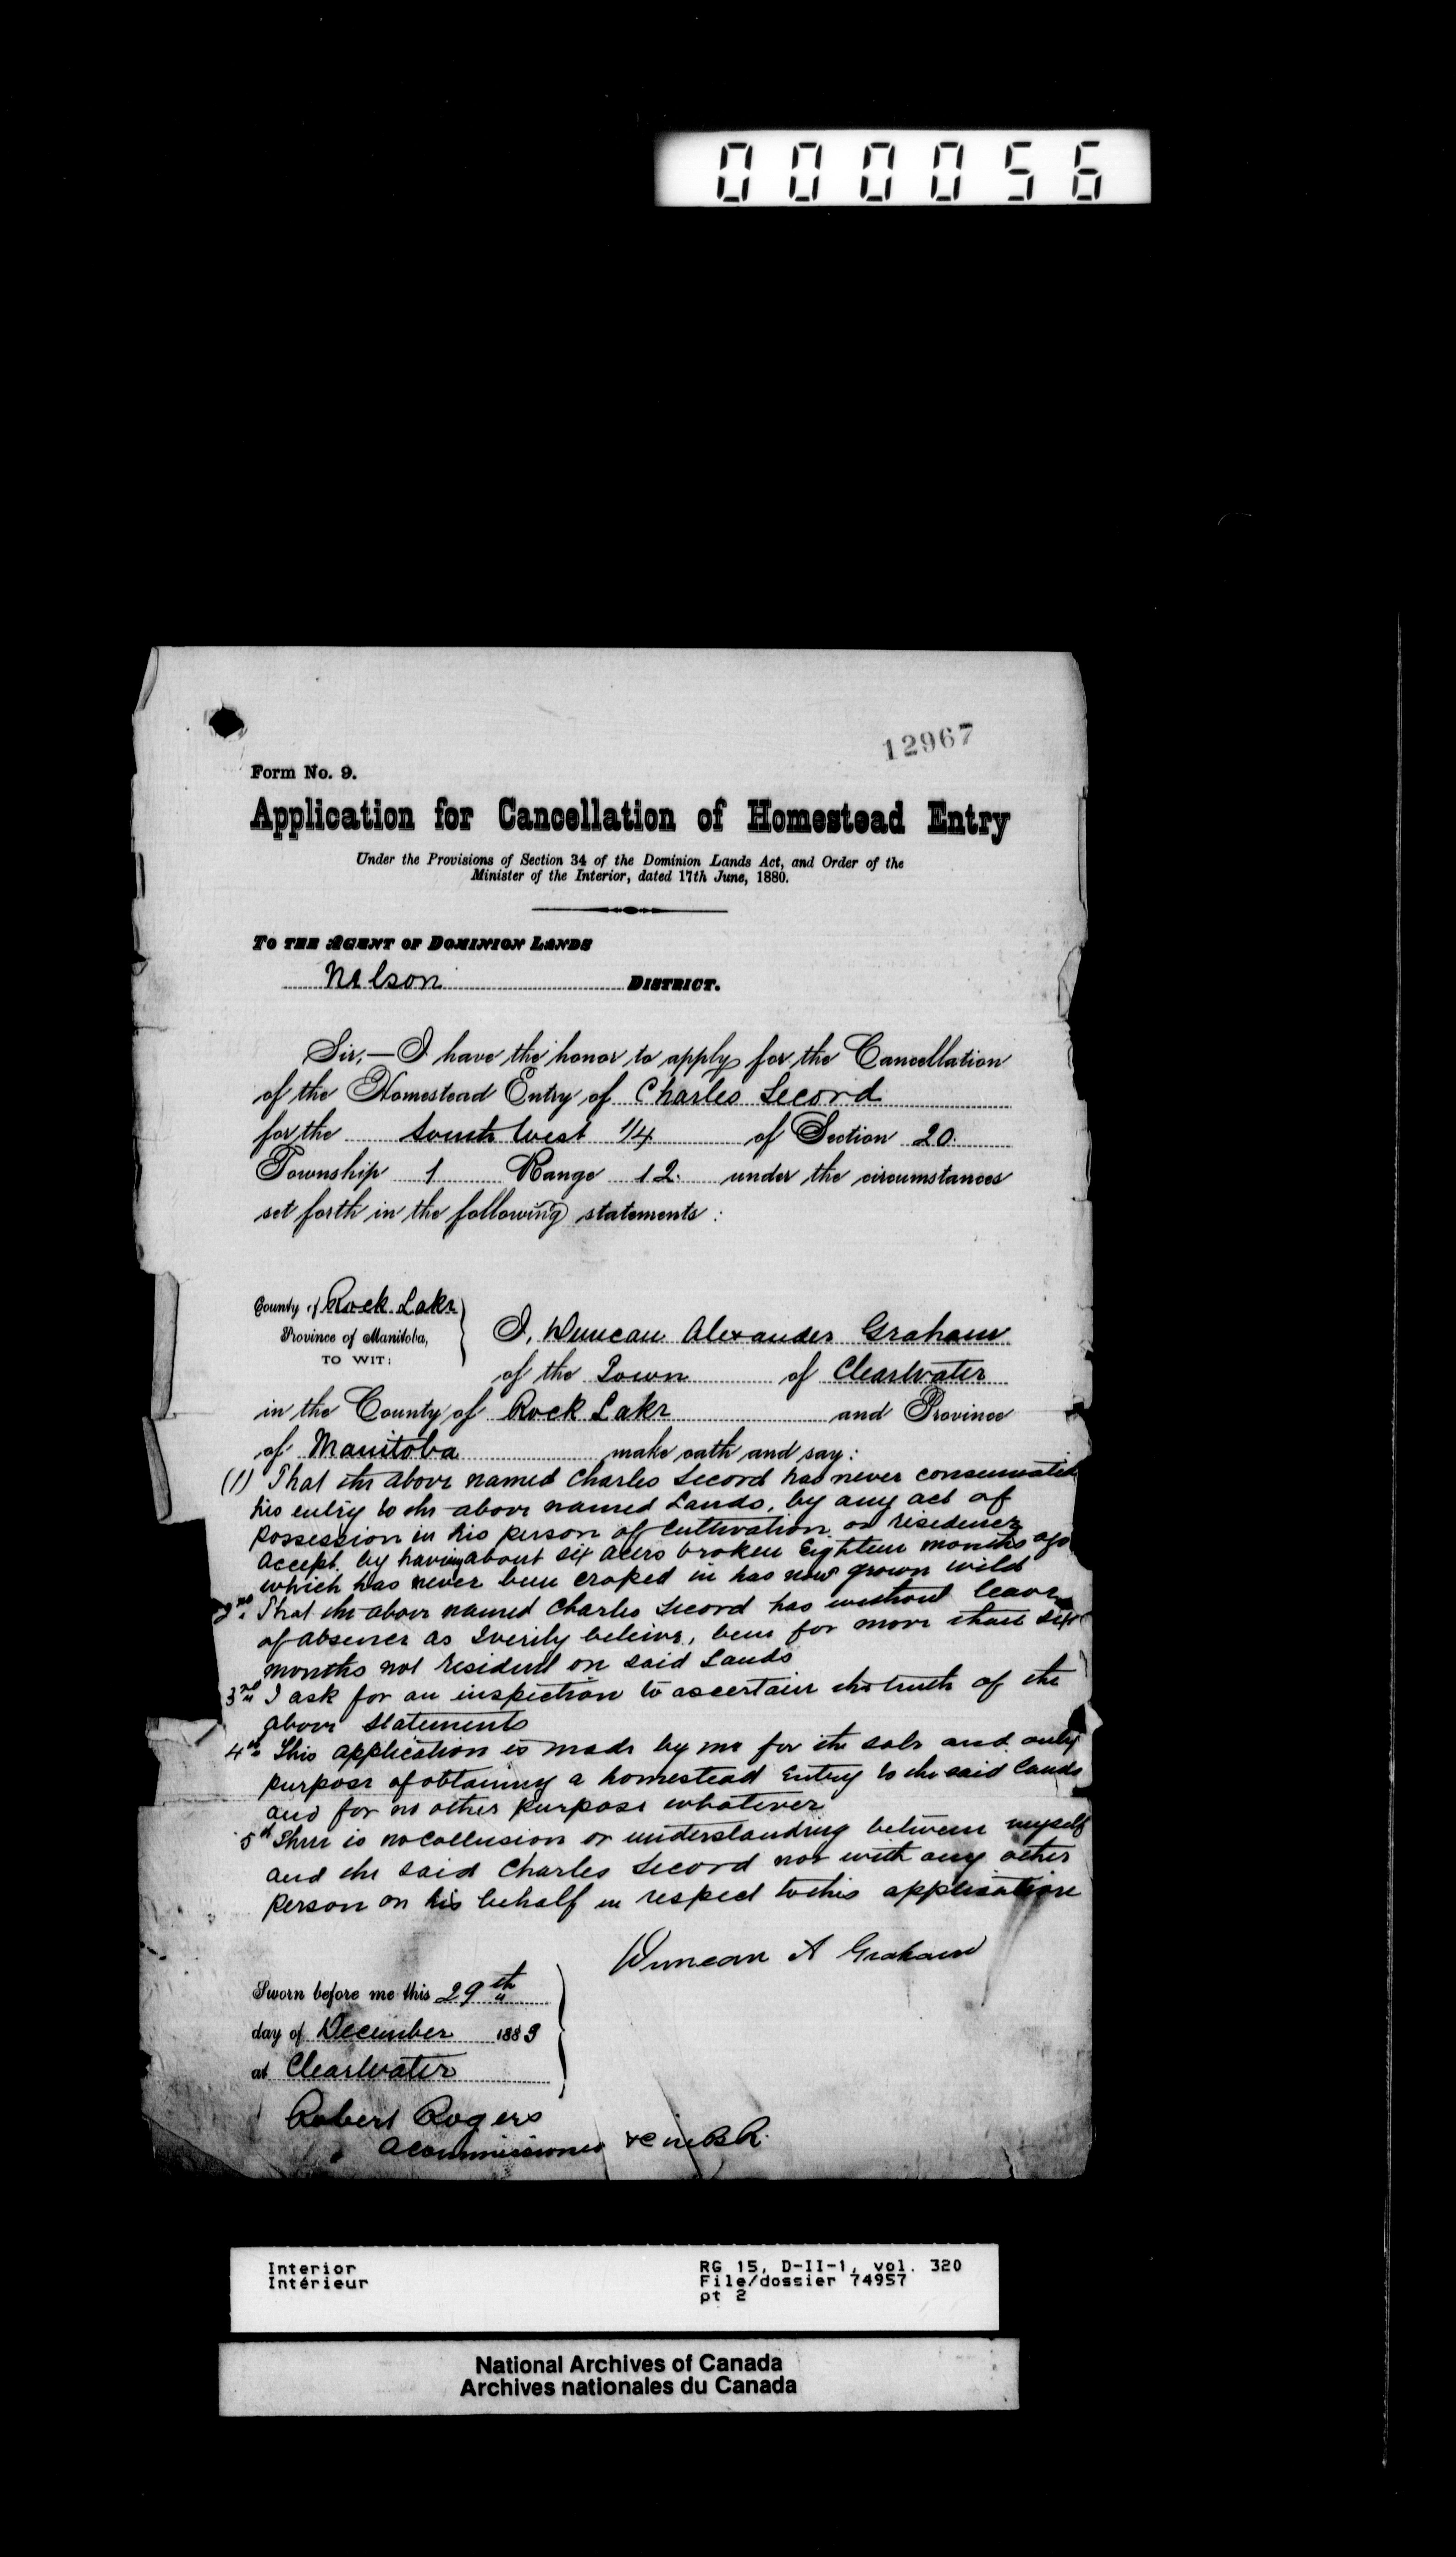 000056
12967
Form No. 9.
Application for Cancellation of Homestead Entry
Under the Provisions of Section 34 of the Dominion Lands Act, and Order of the
Minister of the Interior, dated 17th June, 1880.
To the Agent of Dominion Lands
Nelson District.
Sir,—I have the honor to apply for the Cancellation
of the Homestead Entry of Charles Secord
for the South West 1/4 of Section 20.
Township 1 Range 12. under the circumstances
set forth in the following statements:
County of Rock Lake
Province of Manitoba,
TO WIT:
I, Duncan Alexander Graham
of the Town of Clearwater
in the County of Rock Lake and Province
of Manitoba make oath and say:
(1) That the above named Charles Secord has never consumated
his entry to the above named Lands, by any act of
possession in his person of Cultivation or residence
accept by having about six acres broken Eighteen months ago
which has never been croped in has now grown wild
2nd That the above named Charles Secord has without leave
of absence as I verily beleive, been for more than six
months not resident on said Lands
3rd I ask for an inspection to ascertain the truth of the
above statements
4th This application is made by me for the sole and only
purpose of obtaining a homestead Entry to the said lands
and for no other purpose whatever
5th There is no Collusion or understanding between myself
and the said Charles Secord nor with any other
person on his behalf in respect to this application
Duncan A Graham
Sworn before me this 29th
day of December 1883
at Clearwater
Robert Rogers
A Commissioner &c in B.R.
Interior
Intérieur
RG 15, D-II-1, vol. 320
File/dossier 74957
pt 2
National Archives of Canada
Archives nationales du Canada